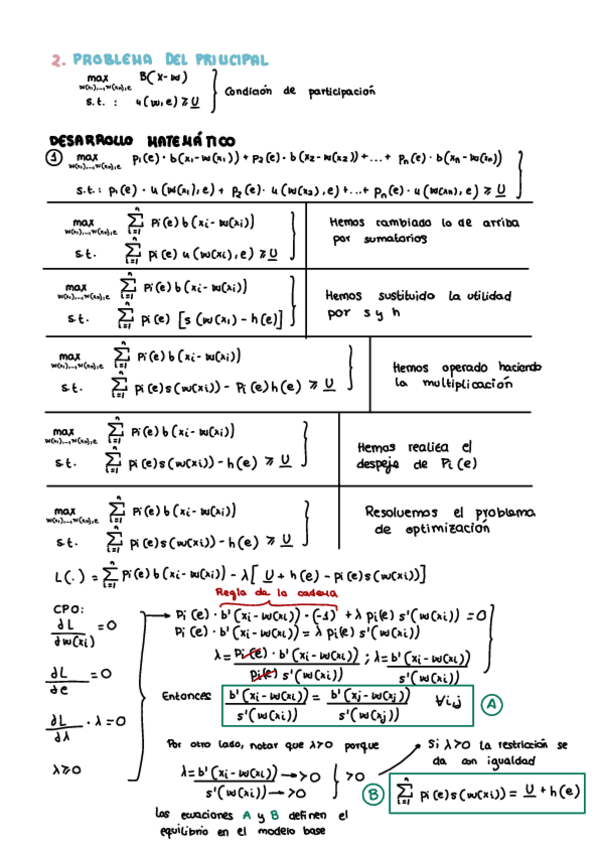 2. PROBLEMA DEL PRINCIPAL
max B(x-w)
w(x₁),...,w(xₙ),e
s.t. : u(w,e) ≥ U̲
Condición de participación
DESARROLLO MATEMÁTICO
① max p₁(e)·b(x₁-w(x₁)) + p₂(e)·b(x₂-w(x₂)) + ... + pₙ(e)·b(xₙ-w(xₙ))
w(x₁),...,w(xₙ),e
s.t.: p₁(e)·u(w(x₁),e) + p₂(e)·u(w(x₂),e) + ... + pₙ(e)·u(w(xₙ),e) ≥ U̲
max ∑ⁿᵢ₌₁ pi(e)b(xi-w(xi))
w(x₁),...,w(xₙ),e
s.t. ∑ⁿᵢ₌₁ pi(e)u(w(xi),e) ≥ U̲
Hemos cambiado lo de arriba
por sumatorios
max ∑ⁿᵢ₌₁ pi(e)b(xi-w(xi))
w(x₁),...,w(xₙ),e
s.t. ∑ⁿᵢ₌₁ pi(e) [s(w(x₁)-h(e)]
Hemos sustituido la utilidad
por s y h
max ∑ⁿᵢ₌₁ pi(e)b(xi-w(xi))
w(x₁),...,w(xₙ),e
s.t. ∑ⁿᵢ₌₁ pi(e)s(w(xi)) - Pi(e)h(e) ≥ U̲
Hemos operado haciendo
la multiplicación
max ∑ⁿᵢ₌₁ pi(e)b(xi-w(xi))
w(x₁),...,w(xₙ),e
s.t. ∑ⁿᵢ₌₁ pi(e)s(w(xi)) - h(e) ≥ U̲
Hemos realiza el
despeje de Pi(e)
max ∑ⁿᵢ₌₁ pi(e)b(xi-w(xi))
w(x₁),...,w(xₙ),e
s.t. ∑ⁿᵢ₌₁ pi(e)s(w(xi)) - h(e) ≥ U̲
Resolvemos el problema
de optimización
L(.) = ∑ⁿᵢ₌₁ pi(e)b(xi-w(xi)) - λ[U̲ + h(e) - pi(e)s(w(xi))]
Regla de la cadena
CPO:
∂L/∂w(xi) = 0
∂L/∂e = 0
∂L/∂λ · λ = 0
λ ≥ 0
Pi(e)·b'(xi-w(xi))·(-1) + λpi(e)s'(w(xi)) = 0
Pi(e)·b'(xi-w(xi)) = λpi(e)s'(w(xi))
λ = Pi(e)·b'(xi-w(xi)) / pi(e)s'(w(xi)) ; λ = b'(xi-w(xi)) / s'(w(xi))
Entonces b'(xi-w(xi)) / s'(w(xi)) = b'(xj-w(xj)) / s'(w(xj)) ∀i,j Ⓐ
Por otro lado, notar que λ>0 porque
λ = b'(xi-w(xi)) → >0 / s'(w(xi)) → >0 } >0
Si λ>0 la restricción se
da con igualdad
Ⓑ ∑ⁿᵢ₌₁ pi(e)s(w(xi)) = U̲ + h(e)
Las ecuaciones A y B definen el
equilibrio en el modelo base